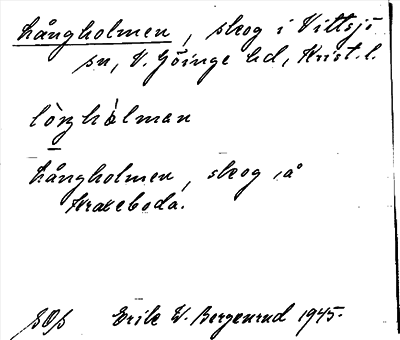 Långholmen, skog i Vittsjö
sn, V. Göinge hd, Krist. l.
Långholmen, skog å
Krakeboda.
Erik W. Bergenrud 1945.